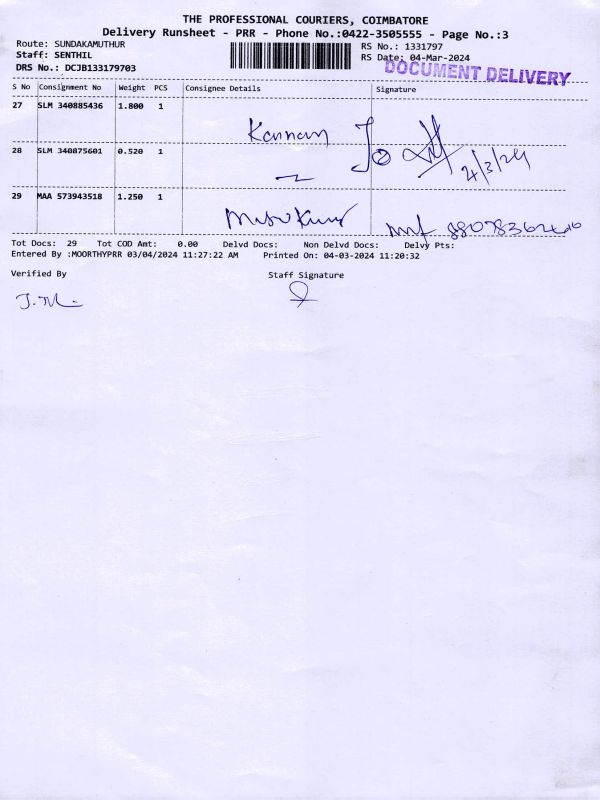 THE PROFESSIONAL COURIERS, COIMBATORE
Delivery Runsheet - PRR - Phone No.:0422-3505555 - Page No.:3
Route: SUNDAKAMUTHUR
Staff: SENTHIL
DRS No.: DCJB133179703
RS No.: 1331797
RS Date: 04-Mar-2024
DOCUMENT DELIVERY
S No Consignment No Weight PCS Consignee Details Signature
27 SLM 340885436 1.800 1
Kannan
28 SLM 340875601 0.520 1
4/3/24
29 MAA 573943518 1.250 1
Tot Docs: 29 Tot COD Amt: 0.00 Delvd Docs: Non Delvd Docs: Delvy Pts:
Entered By :MOORTHYPRR 03/04/2024 11:27:22 AM Printed On: 04-03-2024 11:20:32
Verified By Staff Signature